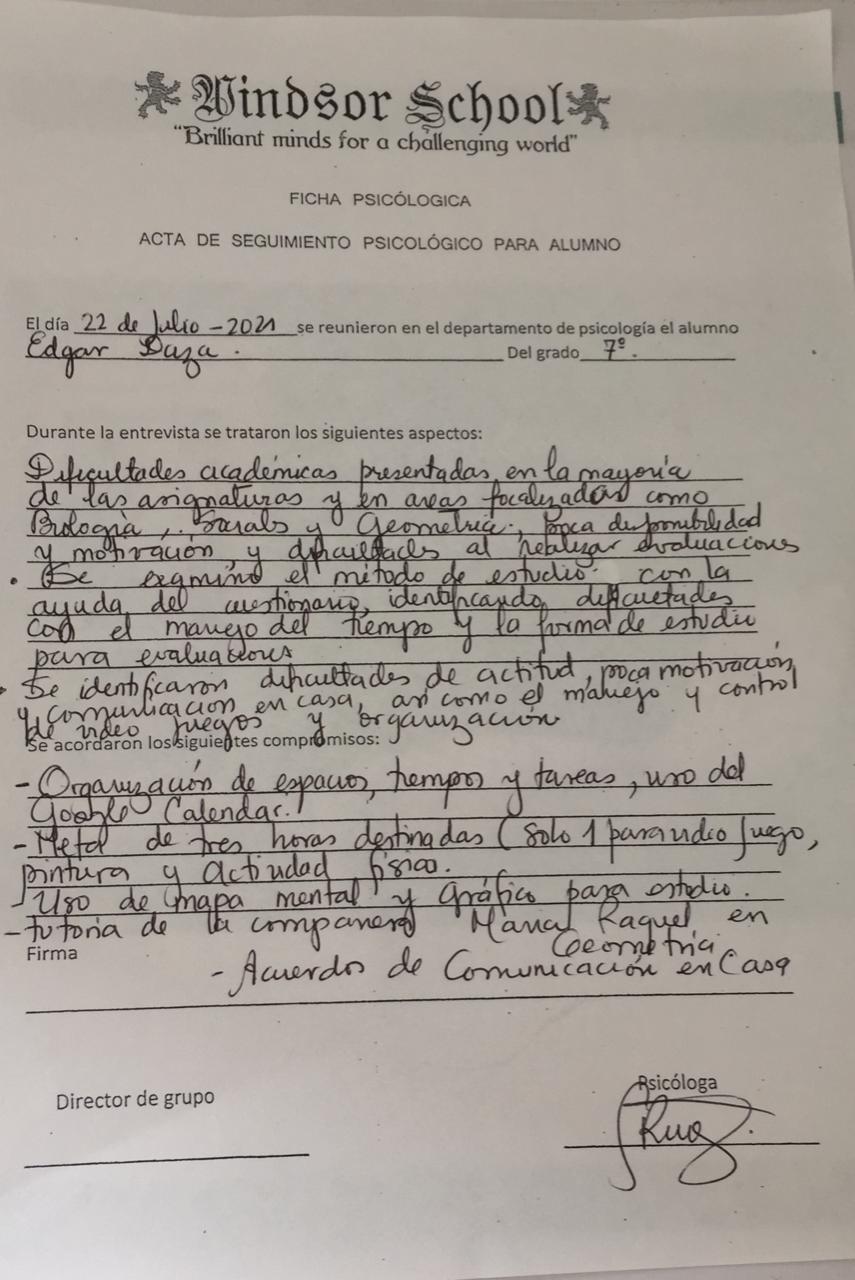 Windsor School
"Brilliant minds for a challenging world"
FICHA PSICÓLOGICA
ACTA DE SEGUIMIENTO PSICOLÓGICO PARA ALUMNO
El día 22 de Julio - 2021 se reunieron en el departamento de psicología el alumno
Edgar Daza. Del grado 7º.
Durante la entrevista se trataron los siguientes aspectos:
Dificultades académicas presentadas en la mayoría
de las asignaturas y en areas focalizadas como
Biología, Socials y Geometría, poca disponibilidad
y motivación y dificultades al realizar evaluaciones
• Se examinó el método de estudio con la
ayuda del cuestionario, identificando dificultades
con el manejo del tiempo y la forma de estudio
para evaluaciones
• Se identificaron dificultades de actitud, poca motivación,
y comunicacion en casa, asi como el manejo y control
de video juegos y organización
Se acordaron los siguientes compromisos:
- Organización de espacios, tiempos y tareas, uso del
Google Calendar.
- de tres horas destinadas (solo 1 para video juego,
pintura y actividad fisico.
- Uso de mapa mental y gráfico para estudio.
- tutoria de la compañera Maria Raquel en
Geometria
Firma
- Acuerdos de Comunicación en Casa
Director de grupo
Psicóloga